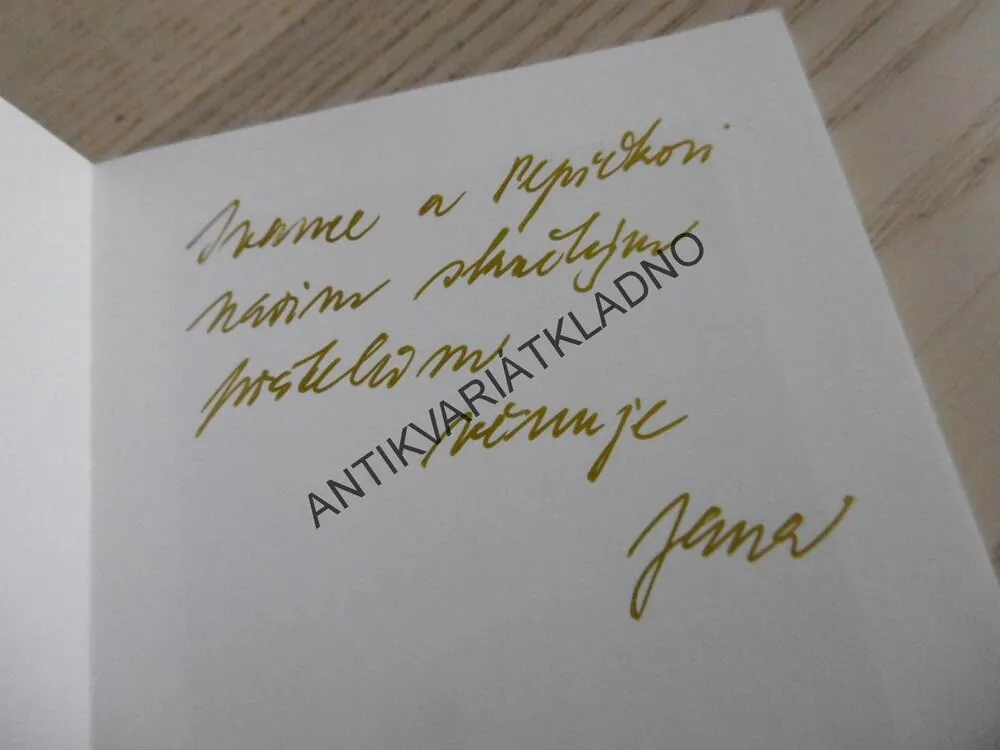 Ivance a Pepíčkovi
našim skvělým
přátelům
věnuje
Jana
ANTIKVARIÁTKLADNO